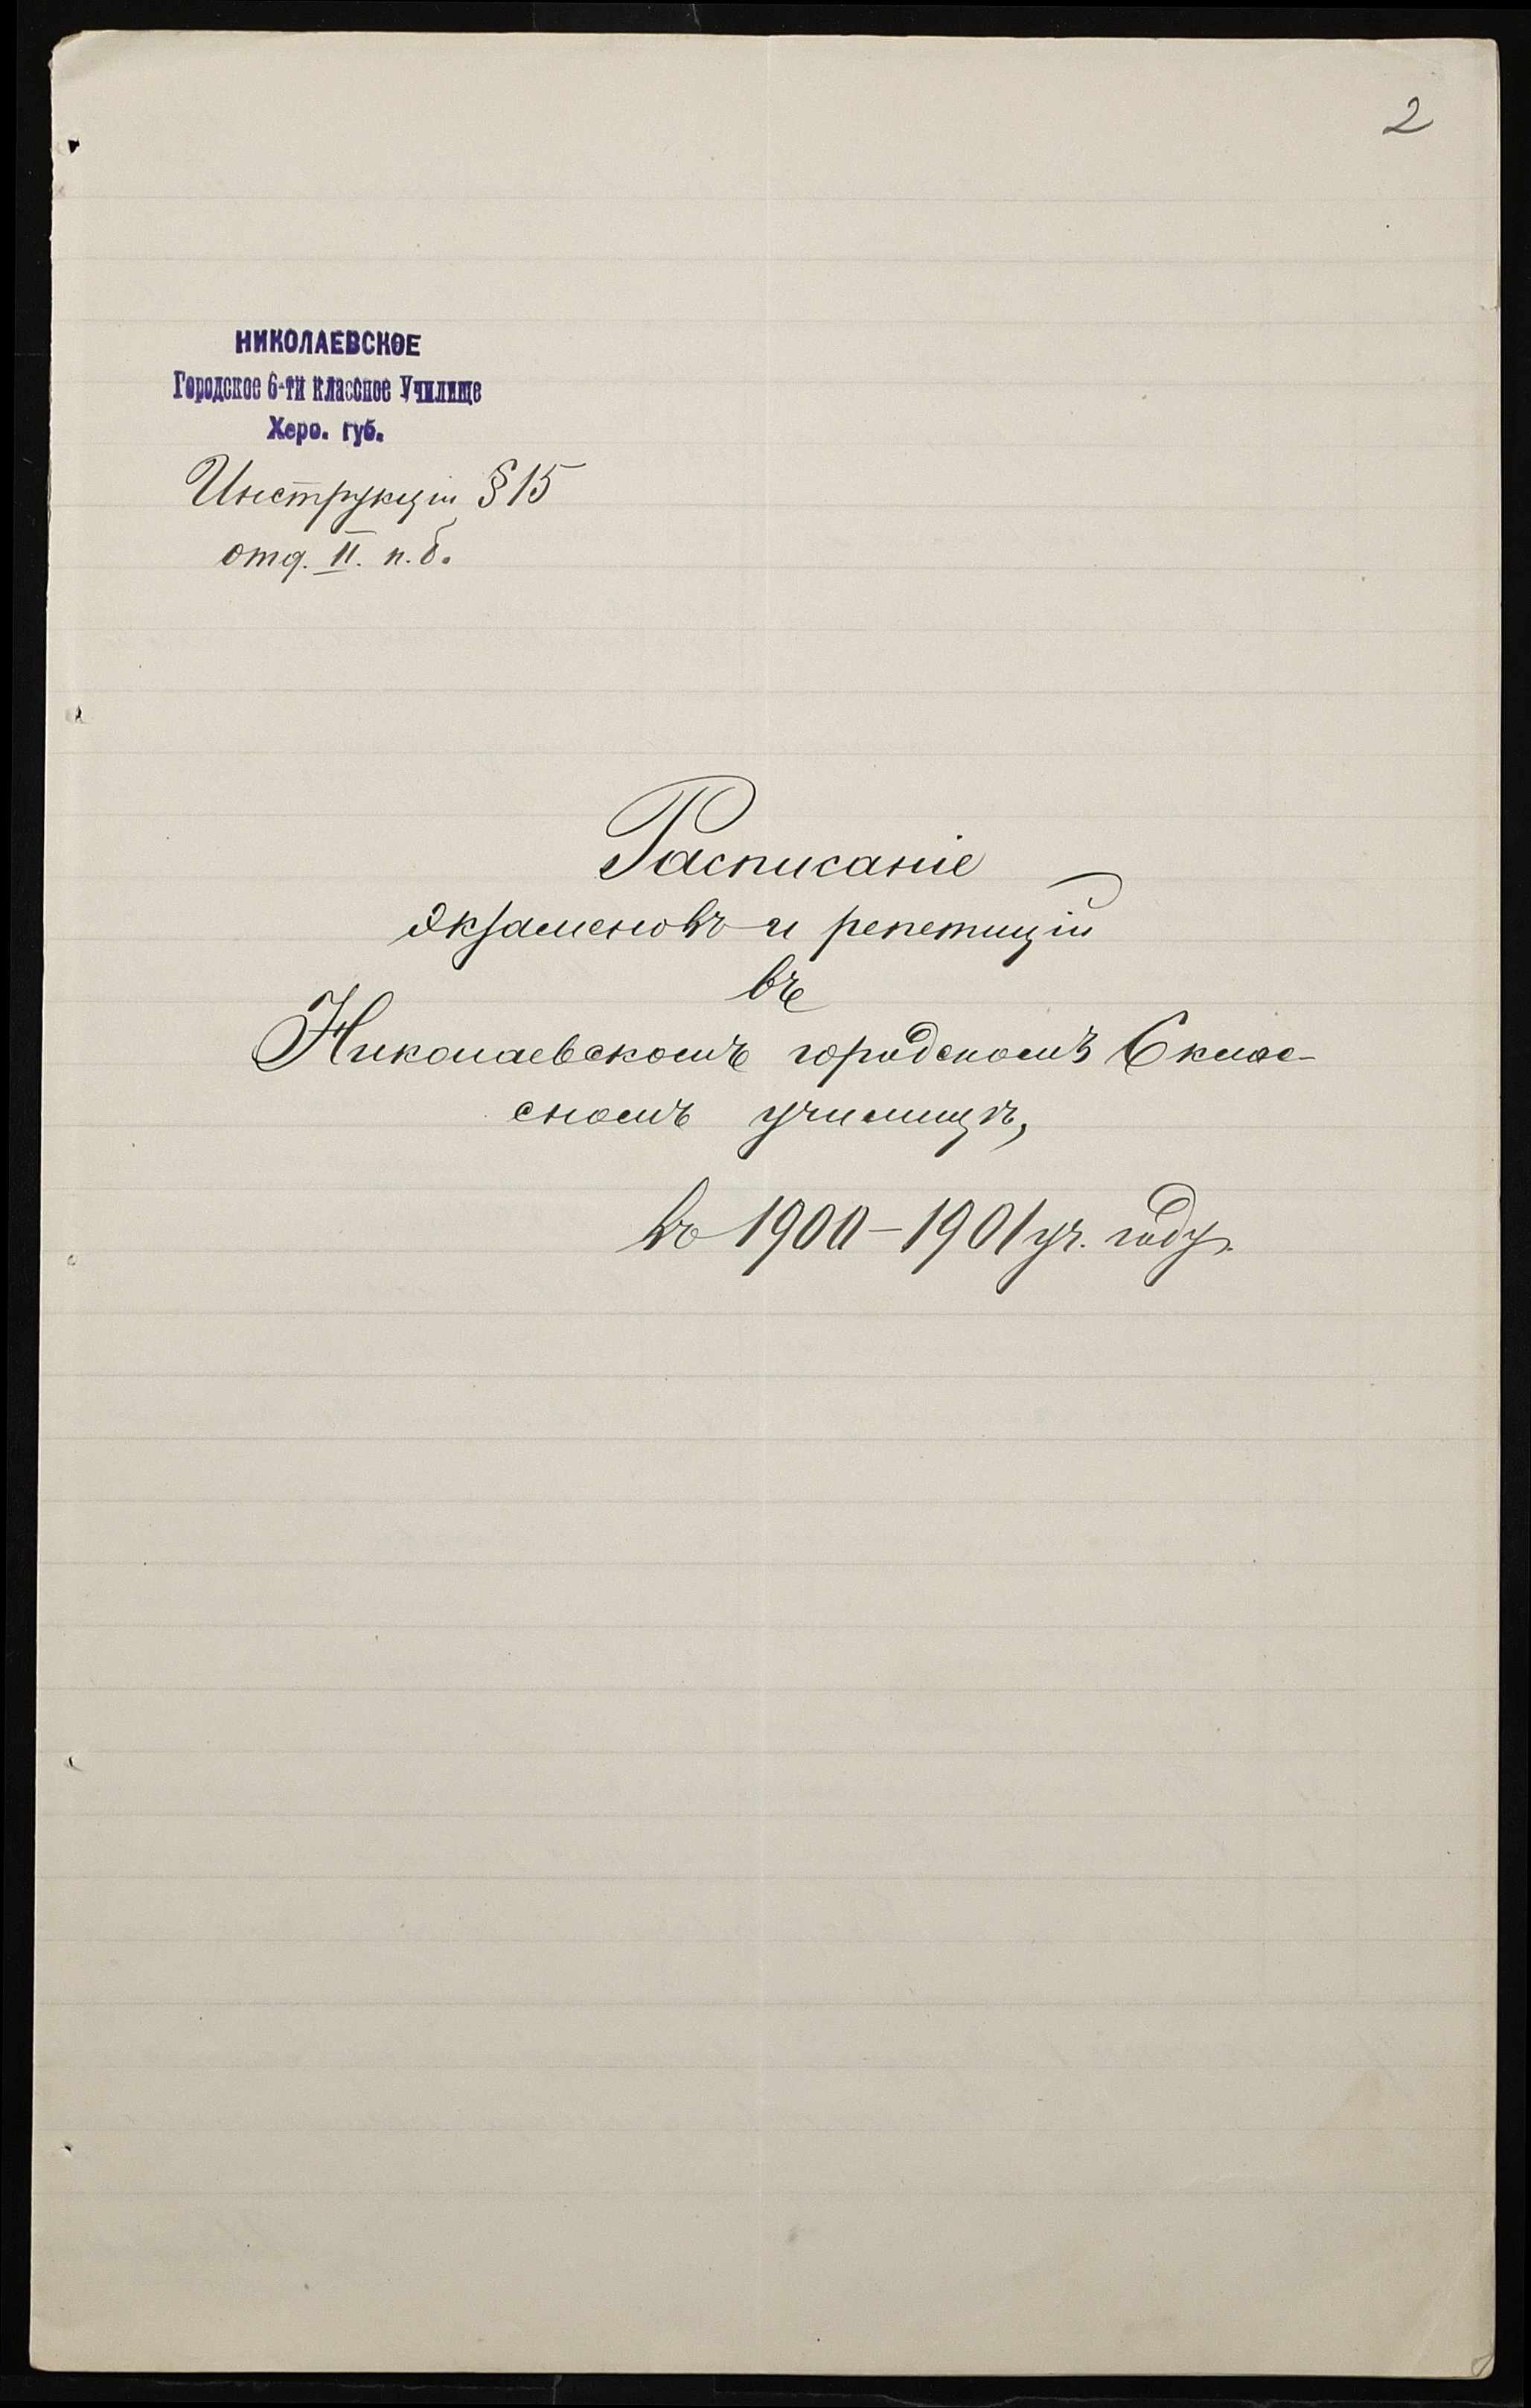 2
НИКОЛАЕВСКОЕ
Городское 6-ти классное Училище
Херс. губ.
Инструкціи § 15
отд. II. п. б.
Расписаніе
экзаменовъ и репетицій
въ
Николаевскомъ городскомъ 6 клас-
сномъ училищѣ,
въ 1900–1901 уч. году.